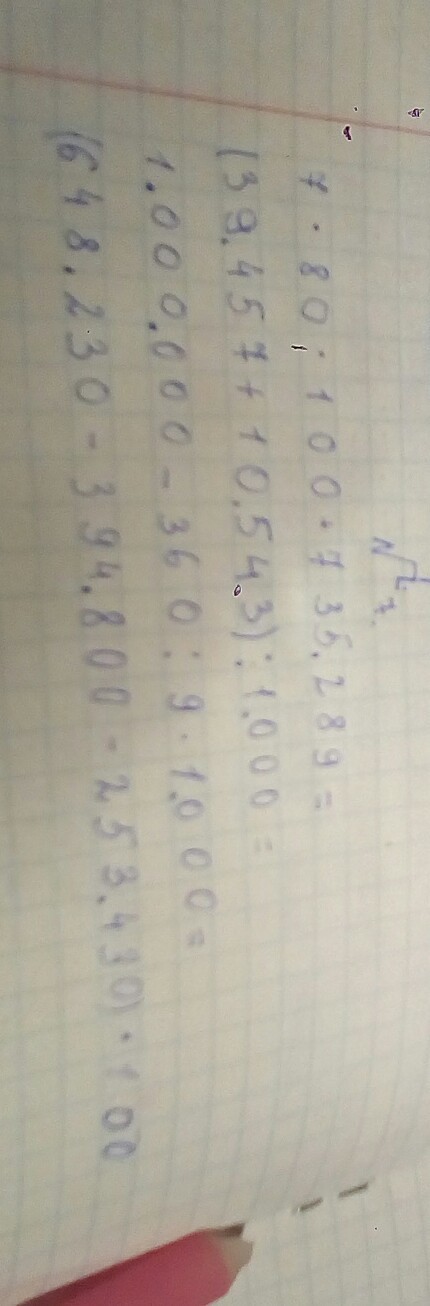 № 7.
7 · 80 : 100 · 735.289 =
(39.457 + 10.543) : 1.000 =
1.000.000 - 360 : 9 · 1.000 =
(648.230 - 394.800 - 253.430) · 100